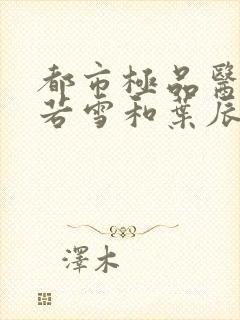 都市極品醫
若雪和葉辰
澤木